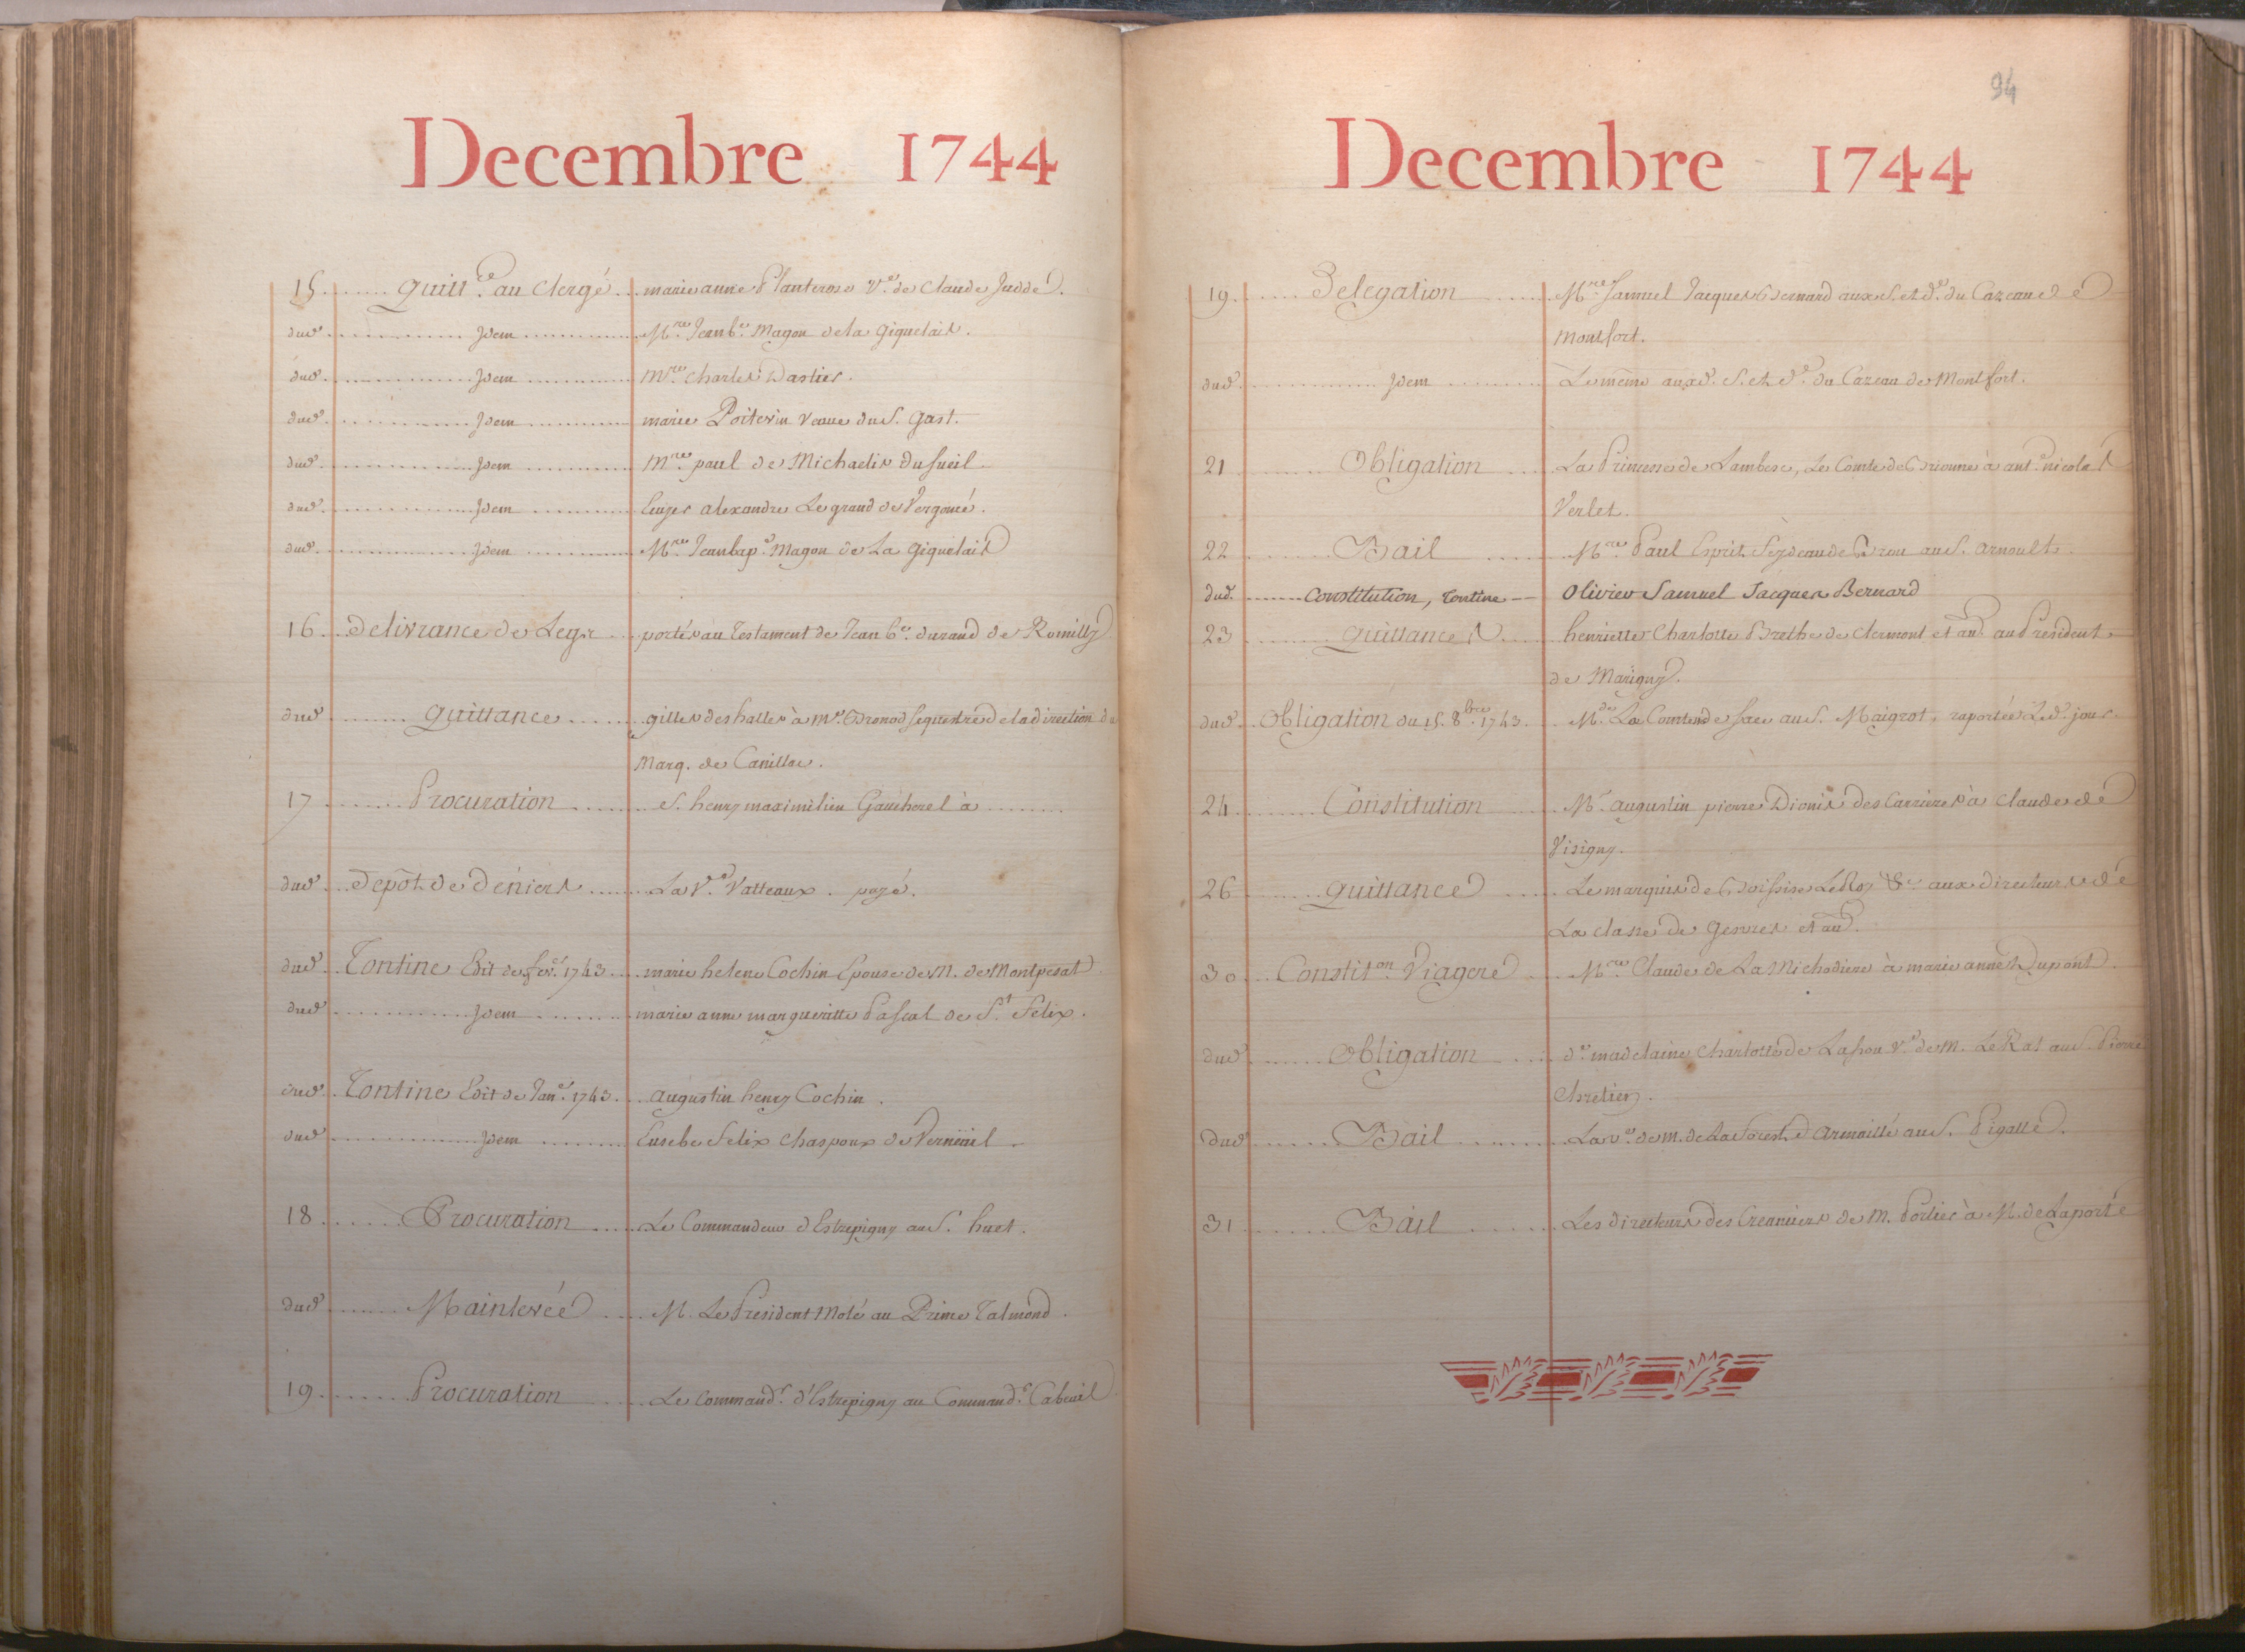 Decembre 1744
15 quitt.ce au Clergé marie anne Planterose V.e de Claude Juddé.
dud. Jdem M.re Jean b.e Magon dela Giquelais.
dud. Jdem M.re Charles Dastier.
dud. Jdem marie Poitevin veuve du S. Gast.
dud. Jdem M.re paul de Michaelis du
dud. Jdem alexandre Le grand de Vergoncé.
dud. Jdem M.re Jean bap.e Magon de La Giquelais
16 delivrance de Legs portés au Testament de Jean b.e durand de Romilly
dud quittance gilles deshalles à M.e Bronod sequestre de la direction du
Marq. de Canillac.
17 Procuration S. henry maximilien Gaucherel à
dud. depôt de deniers La V.e Vatteaux. payé.
dud. Tontine Edit de fev.er 1743 marie helene Cochin Epouse de M. de Montpesat
dud Jdem marie anne margueritte Pascal de S.t Felix.
dud. Tontine Edit de Jan.er 1743 augustin henry Cochin.
dud Jdem Eusebe Felix Chaspoux de Verneüil
18 Procuration Le Commandeur d'Estrepigny au S. huet.
dud Mainlevée M. Le President Molé au Prince Talmond.
19 Procuration Le Command.r d'Estrepigny au Command.r
94
Decembre 1744
19 Delegation M.re Samuel Jacques Bernard aux S. et d.e du Cazeau de
Montfort.
dud. Jdem Le même auxd. S. et d.e du Cazeau de Montfort.
21 Obligation La Princesse de Lambesc, Le Comte de Brionne à ant.e nicolas
Verlet.
22 Bail M.re Paul Esprit Feydeau de Brou au S. Arnoult.
dud. Constitution, Tontine Olivier Samuel Jacques Bernard
23 quittances henriette Charlotte Brethe de Clermont et au. au President
de Marigny.
dud. Obligation du 15. 8.bre 1743. M.de La Comtesse de au S. Maigrot, raportée Led. jour.
24 Constitution M.e augustin pierre Dionis des Carrieres à Claude de
Visigny.
26 quittance Le marquis de Boissise LeRoy &c aux directeurs de
La classe de Gesvres et au.
30 Constit.on Viagere M.re Claude de La Michodiere à marie anne Dupont.
dud. Obligation d.e madelaine Charlotte de V.e de M. Le Rat au S. Pierre
Chretien.
dud Bail La V.e de M. de La Forest d'Armaillé au S. Pigalle.
31 Bail Les directeurs des Creanciers de M. Portier à M. de Laporte